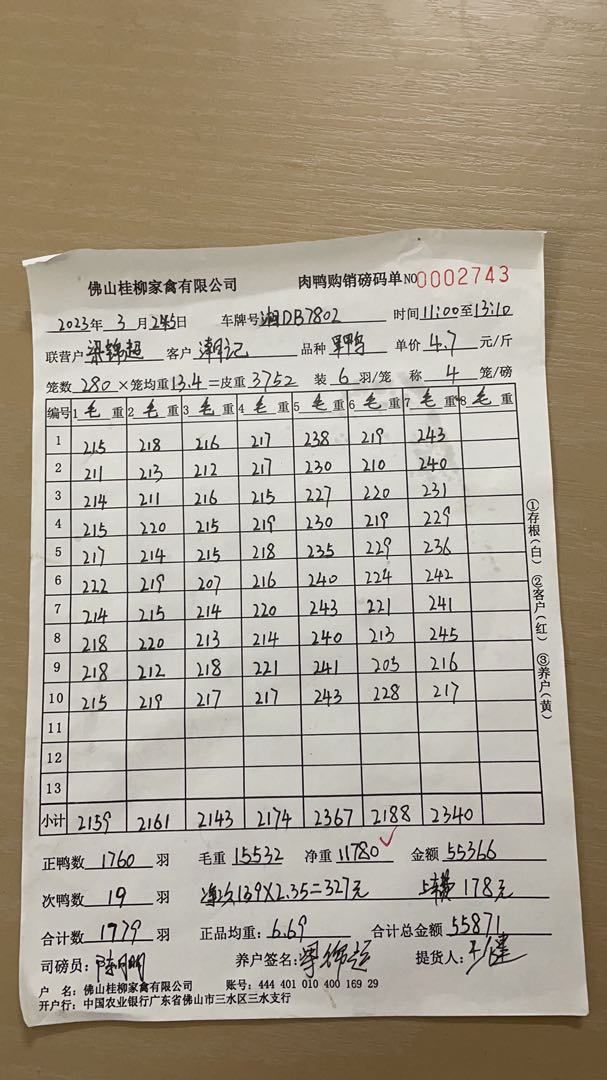 佛山桂柳家禽有限公司 肉鸭购销磅码单 NO 0002743
2023年 3 月 25日 车牌号 湘DB7802 时间 11:00至13:10
联营户 梁锦超 客户 潮记 品种 单价 4.7 元/斤
笼数 280 ×笼均重13.4=皮重 3752 装 6 羽/笼 称 4 笼/磅
编号 1 毛 重 2 毛 重 3 毛 重 4 毛 重 5 毛 重 6 毛 重 7 毛 重 8 毛 重
1 215 218 216 217 238 219 243
2 211 213 212 217 230 210 240
3 214 211 216 215 227 220 231
4 215 220 215 219 230 219 229
5 217 214 215 218 235 229 236
6 222 219 207 216 240 224 242
7 214 215 214 220 243 221 241
8 218 220 213 214 240 213 245
9 218 212 218 221 241 205 216
10 215 219 217 217 243 228 217
11
12
13
小计 2159 2161 2143 2174 2367 2188 2340
①存根(白) ②客户(红) ③养户(黄)
正鸭数 1760 羽 毛重 15532 净重 11780 金额 55366
次鸭数 19 羽 139×2.35=327元 178元
合计数 1779 羽 正品均重: 6.69 合计总金额 55871
司磅员: 养户签名: 提货人:
户 名: 佛山桂柳家禽有限公司 账号: 444 401 010 400 169 29
开户行: 中国农业银行广东省佛山市三水区三水支行